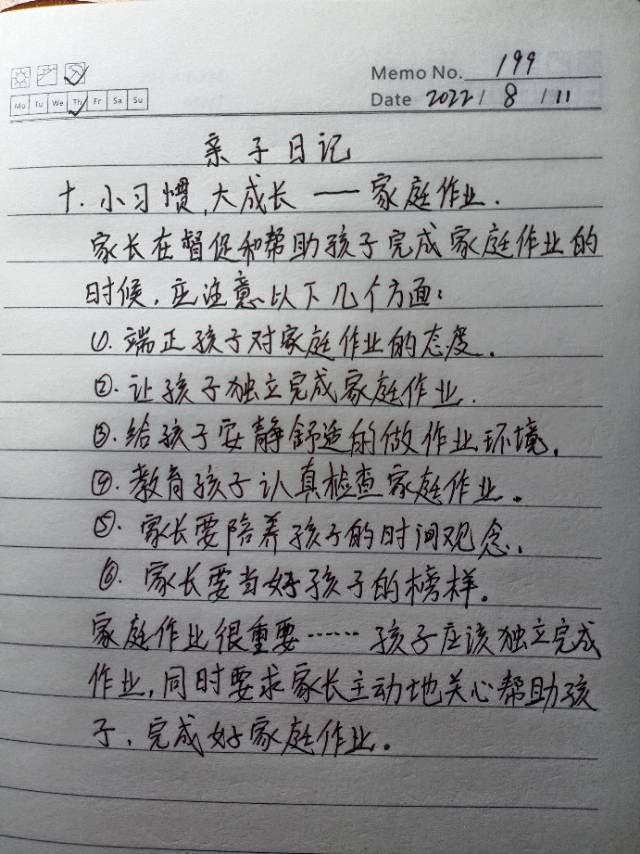 Memo No. 199
Mo Tu We Th Fr Sa Su
Date 2022 / 8 / 11
亲子日记
十.小习惯,大成长——家庭作业.
家长在督促和帮助孩子完成家庭作业的
时候,应注意以下几个方面:
①.端正孩子对家庭作业的态度.
②.让孩子独立完成家庭作业.
③.给孩子安静舒适的做作业环境.
④.教育孩子认真检查家庭作业。
⑤.家长要陪养孩子的时间观念.
⑥.家长要当好孩子的榜样。
家庭作业很重要……孩子应该独立完成
作业,同时要求家长主动地关心帮助孩
子,完成好家庭作业。